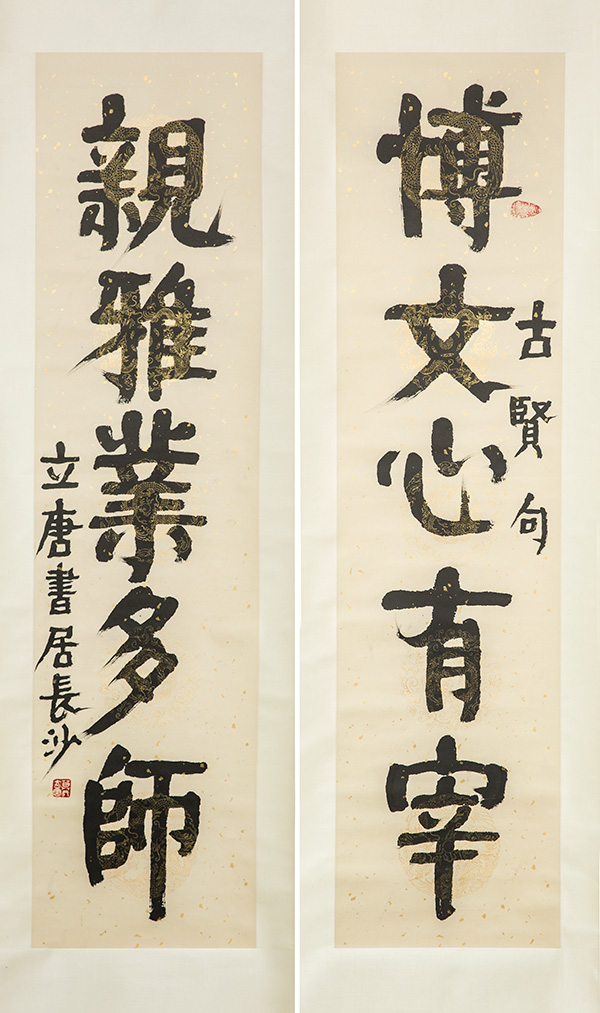 博文心有宰
古賢句
親雅業多師
立唐書居長沙